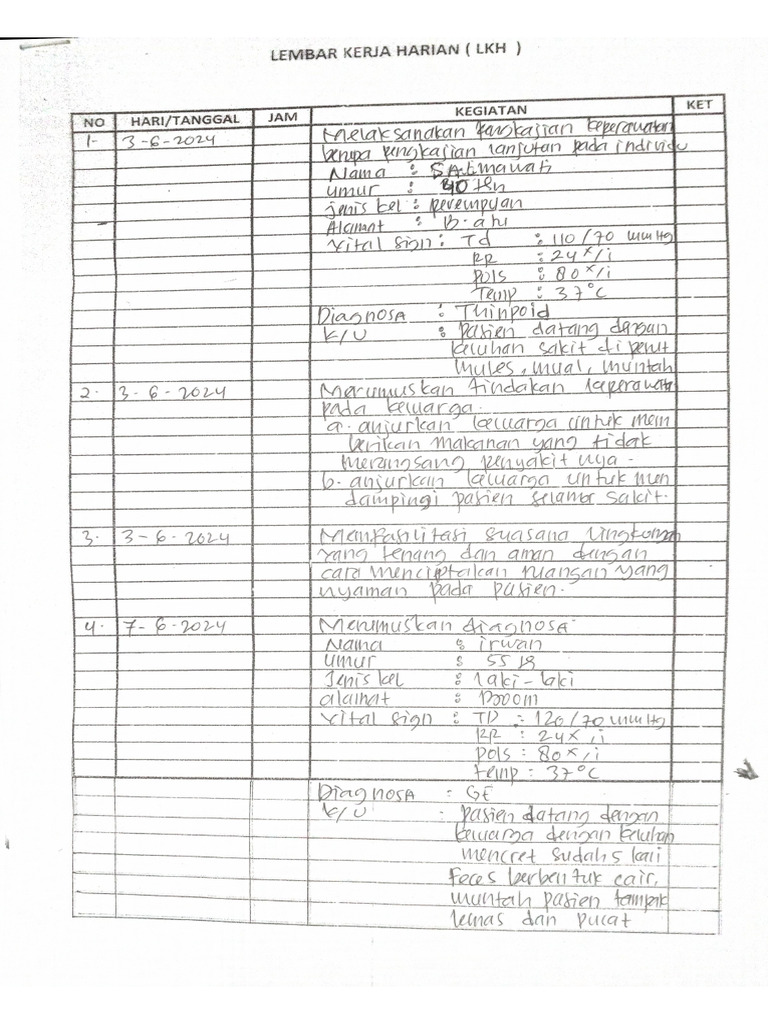 LEMBAR KERJA HARIAN ( LKH )
NO HARI/TANGGAL JAM KEGIATAN KET
1- 3-6-2024 Melaksanakan pengkajian keperawatan
berupa pengkajian lanjutan pada individu
Nama :
umur : 40 thn
jenis kel : perempuan
Alamat :
Vital sign : Td : 110/70 mmHg
RR : 24 x/i
pols : 80 x/i
Temp : 37°C
Diagnosa : Thinpoid
K/U : pasien datang dengan
keluhan sakit di perut
mules, mual, muntah
2. 3-6-2024 Merumuskan tindakan keperawata
pada keluarga.
a. anjurkan keluarga untuk mem
berikan makanan yang tidak
merangsang penyakit nya -
b. anjurkan keluarga untuk men
dampingi pasien selama sakit.
3. 3-6-2024 Memfasilitasi suasana lingkungan
yang tenang dan aman dengan
cara menciptakan ruangan yang
nyaman pada pasien.
4. 7-6-2024 Merumuskan diagnosa
Nama : irwan
umur : 55
Jenis kel : laki-laki
alamat :
Vital sign : TD : 120/70 mmHg
RR : 24 x/i
pols : 80 x/i
temp : 37°C
Diagnosa : GE
K/U : pasien datang dengan
keluarga dengan keluhan
mencret sudah 5 kali
Feces berbentuk cair,
muntah pasien tampak
lemas dan pucat